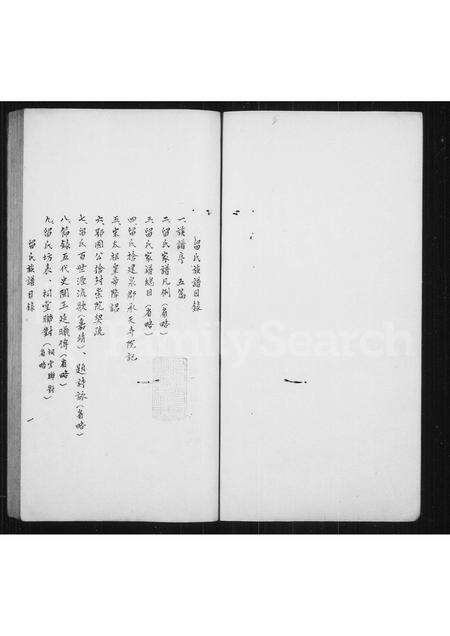 留氏族譜目錄
一、族譜序 五篇
二、留氏家譜凡例（省略）
三、留氏家譜總目（省略）
四、留氏捨建泉郡承天寺院記
五、宋太祖皇帝降詔
六、鄂國公捨封崇院
七、留氏百世源流歌（嘉靖）、題詩詠（省略）
八、節錄五代史閩王延曦傳（省略）
九、留氏坊表、祠堂聯對（祠堂聯對省略）
留氏族譜目錄 一
FamilySearch